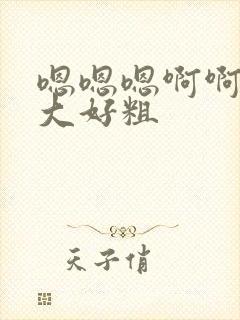 嗯嗯嗯啊啊
大好粗
天子俏